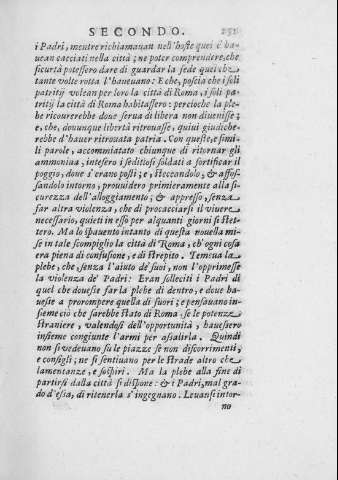 SECONDO. 251
i Padri, mentre richiamauan nell'hoste quei c'ha-
uean cacciati nella città; ne poter comprendere, che
sicurtà potessero dare di guardar la fede quei che
tante volte rotta l'haueuano: E che, poscia che i soli
patritij volean per loro la città di Roma, i soli pa-
tritij la città di Roma habitassero: percioche la ple-
be ricouerebbe doue serua di libera non diuenisse;
e, che, dounque libertà ritrouasse, quiui giudiche-
rebbe d'hauer ritrouata patria. Con queste, e simi-
li parole, accommiatato chiunque di ritornar gli
ammoniua, intesero i seditiosi soldati a fortificar il
poggio, doue s'erano posti; e, steccandolo, & affos-
sandolo intorno, prouidero primieramente alla si-
curezza dell'alloggiamento; & appresso, senza
far altra violenza, che di procacciarsi il viuere
necessario, quieti in esso per alquanti giorni si stet-
tero. Ma lo spauento intanto di questa nouella mi-
se in tale scompiglio la città di Roma, ch'ogni cosa
era piena di confusione, e di strepito. Temeua la
plebe, che, senza l'aiuto de' suoi, non l'opprimesse
la violenza de' Padri: Eran solleciti i Padri di
quel che douesse far la plebe di dentro, e doue ha-
uesse a prorompere quella di fuori; e pensauano in-
sieme ciò che sarebbe stato di Roma, se le potenze
straniere, valendosi dell'opportunità, hauessero
insieme congiunte l'armi per assalirla. Quindi
non si vedeuano su le piazze se non discorrimenti,
e consigli; ne si sentiuano per le strade altro che
lamentanze, e sospiri. Ma la plebe alla fine di
partirsi dalla città si dispone: & i Padri, mal gra-
do d'essa, di ritenerla s'ingegnano. Leuansi intor-
no